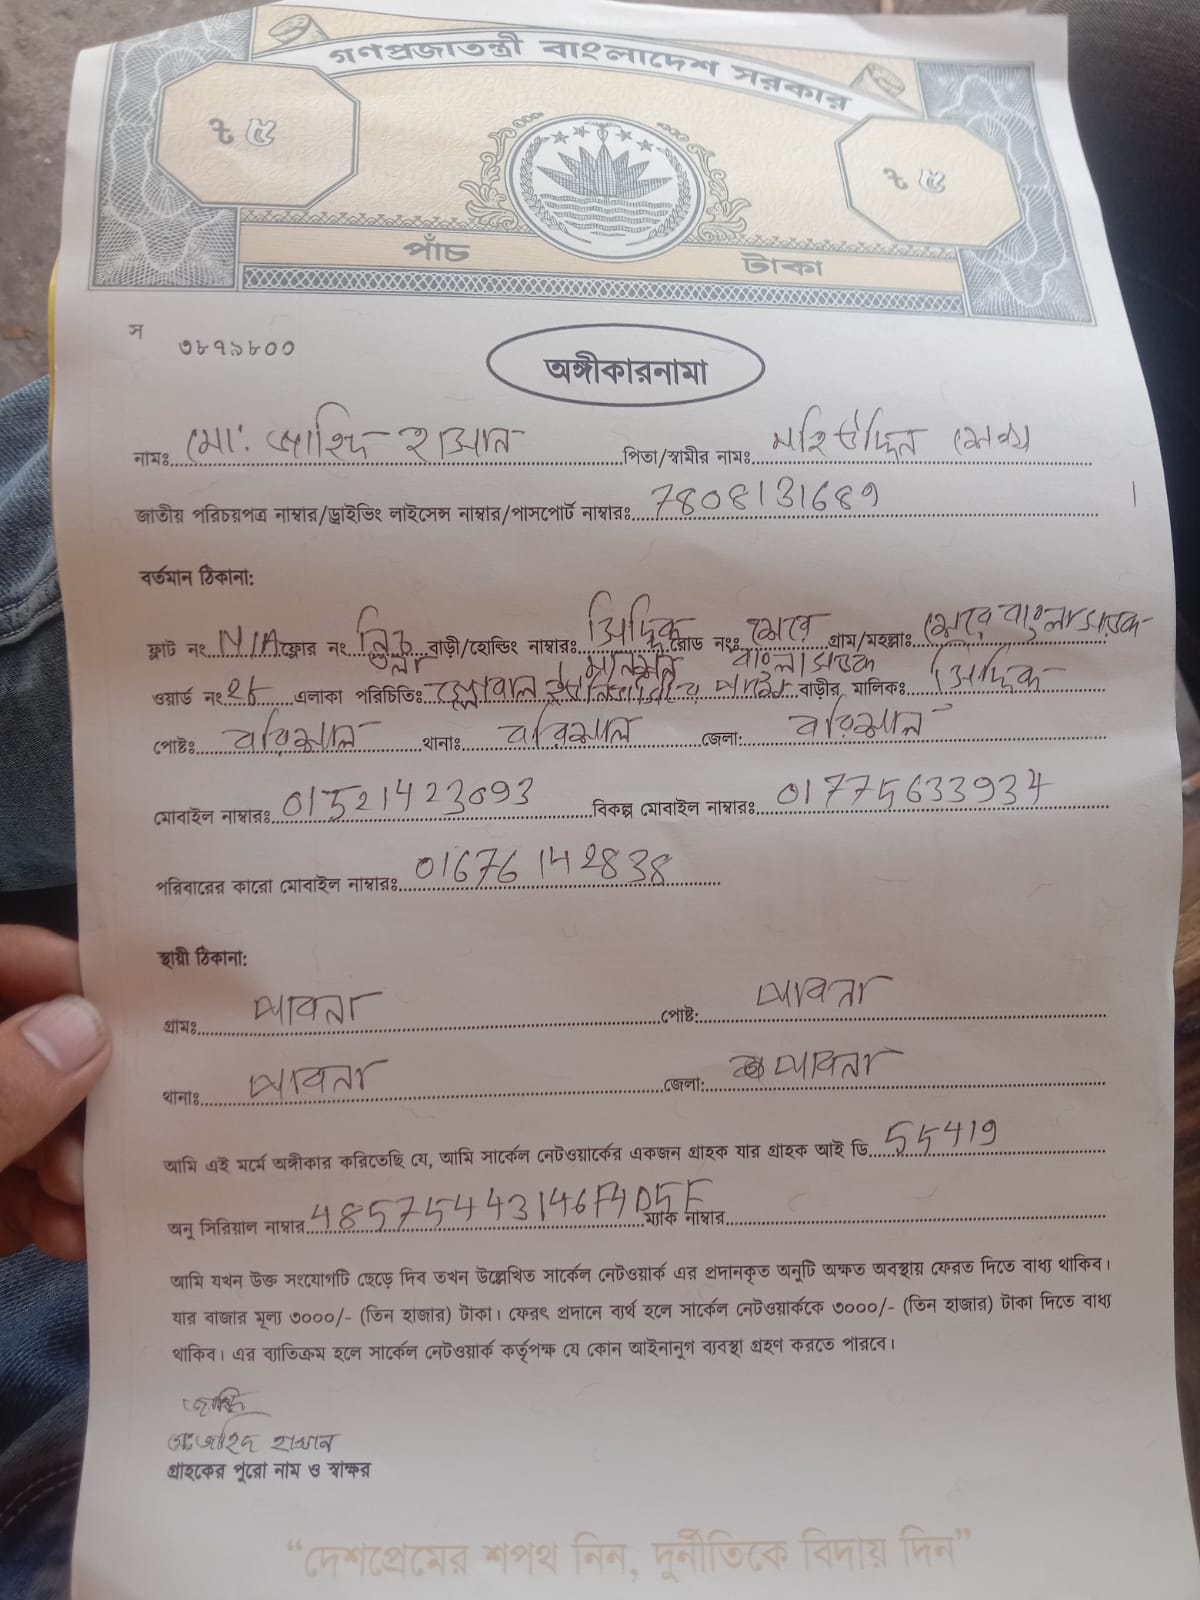 গণপ্রজাতন্ত্রী বাংলাদেশ সরকার
৳ ৫ ৳ ৫
পাঁচ টাকা
স ৩৮৭৯৮০০
অঙ্গীকারনামা
নামঃ মো: জাহিদ হাসান পিতা/স্বামীর নামঃ মহিউদ্দিন সেখ
জাতীয় পরিচয়পত্র নাম্বার/ড্রাইভিং লাইসেন্স নাম্বার/পাসপোর্ট নাম্বারঃ 7808131689
বর্তমান ঠিকানা:
ফ্লাট নং N/A ফ্লোর নং নিচ তলা বাড়ী/হোল্ডিং নাম্বারঃ সিদ্দিক রোড নংঃ শেরে বাংলা সড়ক গ্রাম/মহল্লাঃ শেরে বাংলা সড়ক
ওয়ার্ড নং 26 এলাকা পরিচিতিঃ বাড়ীর মালিকঃ সিদ্দিক
পোষ্টঃ বরিশাল থানাঃ বরিশাল জেলা: বরিশাল
মোবাইল নাম্বারঃ 01521423093 বিকল্প মোবাইল নাম্বারঃ 01775633934
পরিবারের কারো মোবাইল নাম্বারঃ 01676142838
স্থায়ী ঠিকানা:
গ্রামঃ পাবনা পোষ্ট: পাবনা
থানাঃ পাবনা জেলা: পাবনা
আমি এই মর্মে অঙ্গীকার করিতেছি যে, আমি সার্কেল নেটওয়ার্কের একজন গ্রাহক যার গ্রাহক আই ডি 55419
অনু সিরিয়াল নাম্বার 48575443146FAD5F ম্যাক নাম্বার
আমি যখন উক্ত সংযোগটি ছেড়ে দিব তখন উল্লেখিত সার্কেল নেটওয়ার্ক এর প্রদানকৃত অনুটি অক্ষত অবস্থায় ফেরত দিতে বাধ্য থাকিব।
যার বাজার মূল্য ৩০০০/- (তিন হাজার) টাকা। ফেরৎ প্রদানে ব্যর্থ হলে সার্কেল নেটওয়ার্ককে ৩০০০/- (তিন হাজার) টাকা দিতে বাধ্য
থাকিব। এর ব্যাতিক্রম হলে সার্কেল নেটওয়ার্ক কর্তৃপক্ষ যে কোন আইনানুগ ব্যবস্থা গ্রহণ করতে পারবে।
জাহিদ
মো: জাহিদ হাসান
গ্রাহকের পুরো নাম ও স্বাক্ষর
“দেশপ্রেমের শপথ নিন, দুর্নীতিকে বিদায় দিন”